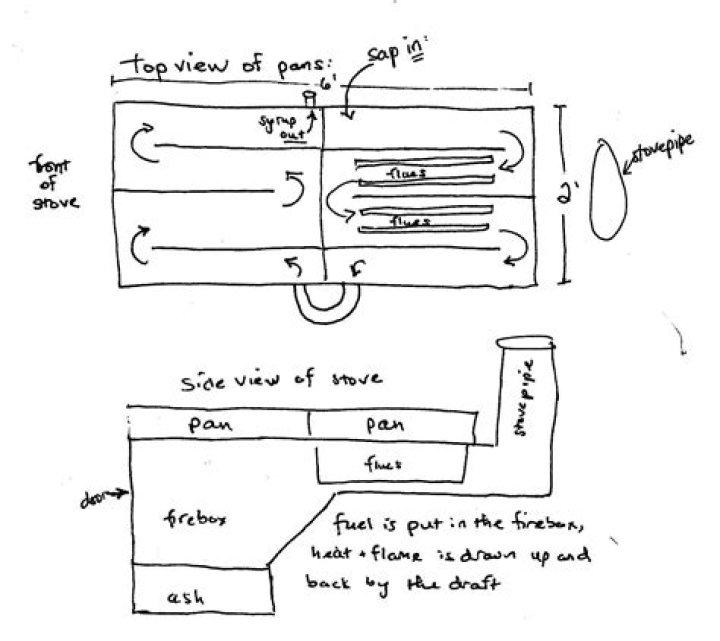 Top view of pans:
sap in:
6'
syrup
out
front
of
stove
flues
flues
2'
stovepipe
side view of stove
stovepipe
pan
pan
flues
door
firebox
fuel is put in the firebox,
heat + flame is drawn up and
back by the draft
ash